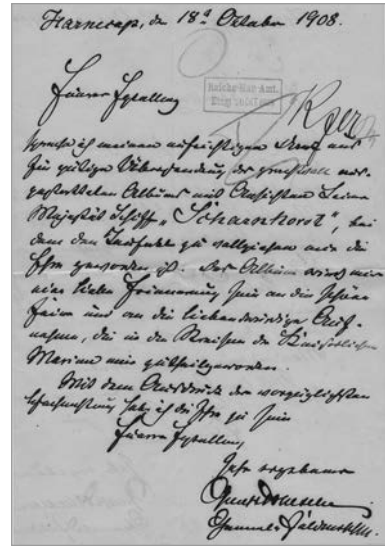 Harnekop, d. 18ᵗ Oktober 1908.
Reichs-Mar-Amt.
Euerer Exzellenz
spreche ich meinen aufrichtigen Dank aus
für gütige Übersendung des prachtvoll aus-
gestatteten Albums mit Ansichten Seiner
Majestät Schiff „Scharnhorst", bei
dem den Taufakt zu vollziehen mir die
Ehre geworden ist. Das Album wird mir
eine liebe Erinnerung sein an die schöne
Feier und an die liebenswürdige Auf-
nahme, die in den Kreisen der Kaiserlichen
Marine mir zutheilgeworden.
Mit dem Ausdruck der vorzüglichsten
Hochachtung habe ich die Ehre zu sein
Euerer Exzellenz
sehr ergebener